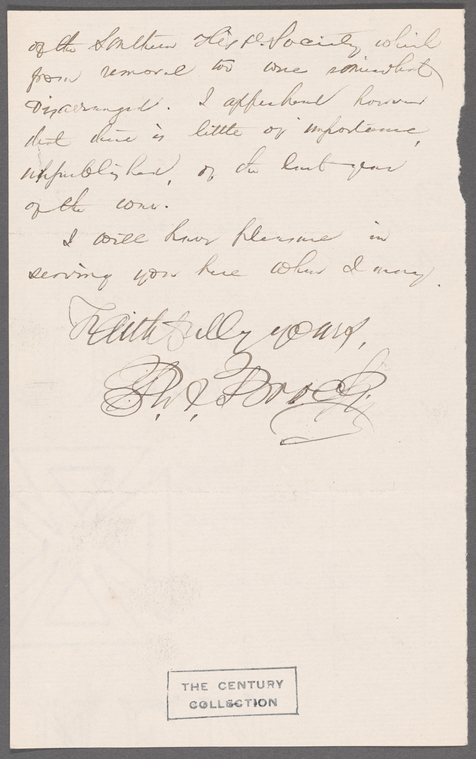 of the Southern Hist. Society, which
from removal too are somewhat
disarranged. I apprehend however
that there is little of importance,
unpublished, of the last year
of the war.
I will have pleasure in
serving you here when I may.
Faithfully yours,
THE CENTURY
COLLECTION